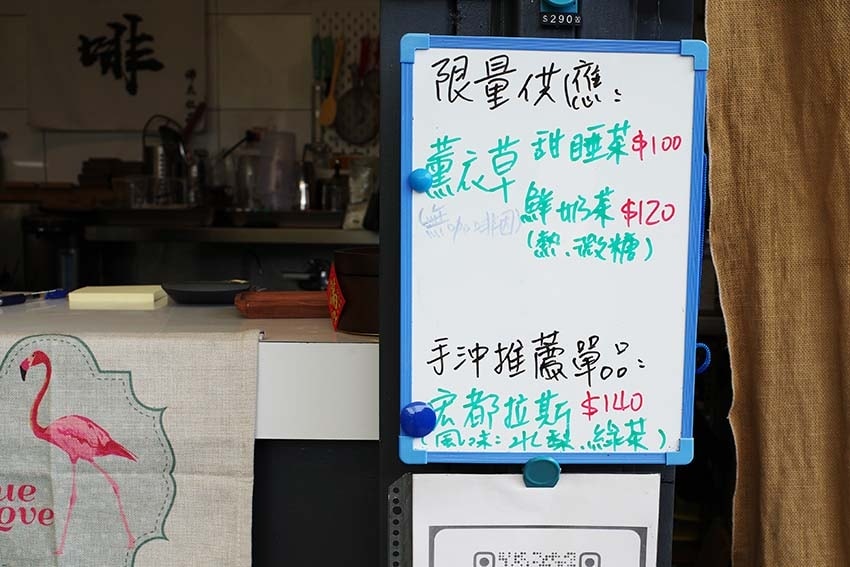 啡
$290
限量供應:
薰衣草 甜睡茶 $100
(無咖啡因) 鮮奶茶 $120
(熱、微糖)
手沖推薦單品:
宏都拉斯 $140
(風味:水梨、綠茶)
ue
Love